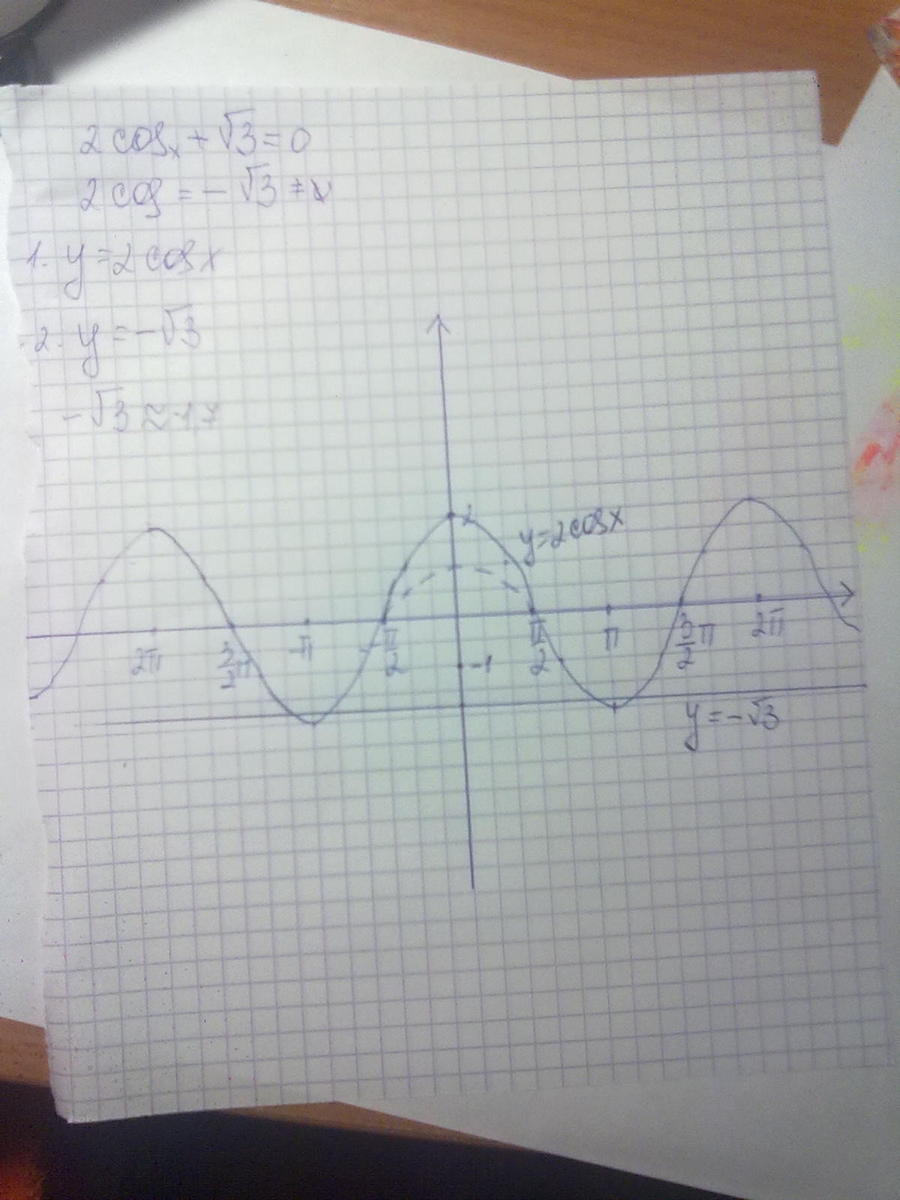 2 cosx + √3 = 0
2 cos = - √3
1. y = 2 cosx
2. y = -√3
-√3 ≈ 1,7
2
y = 2 cosx
2π
3/2 π
-π
-π/2
-1
π/2
π
3/2 π
2π
y = -√3